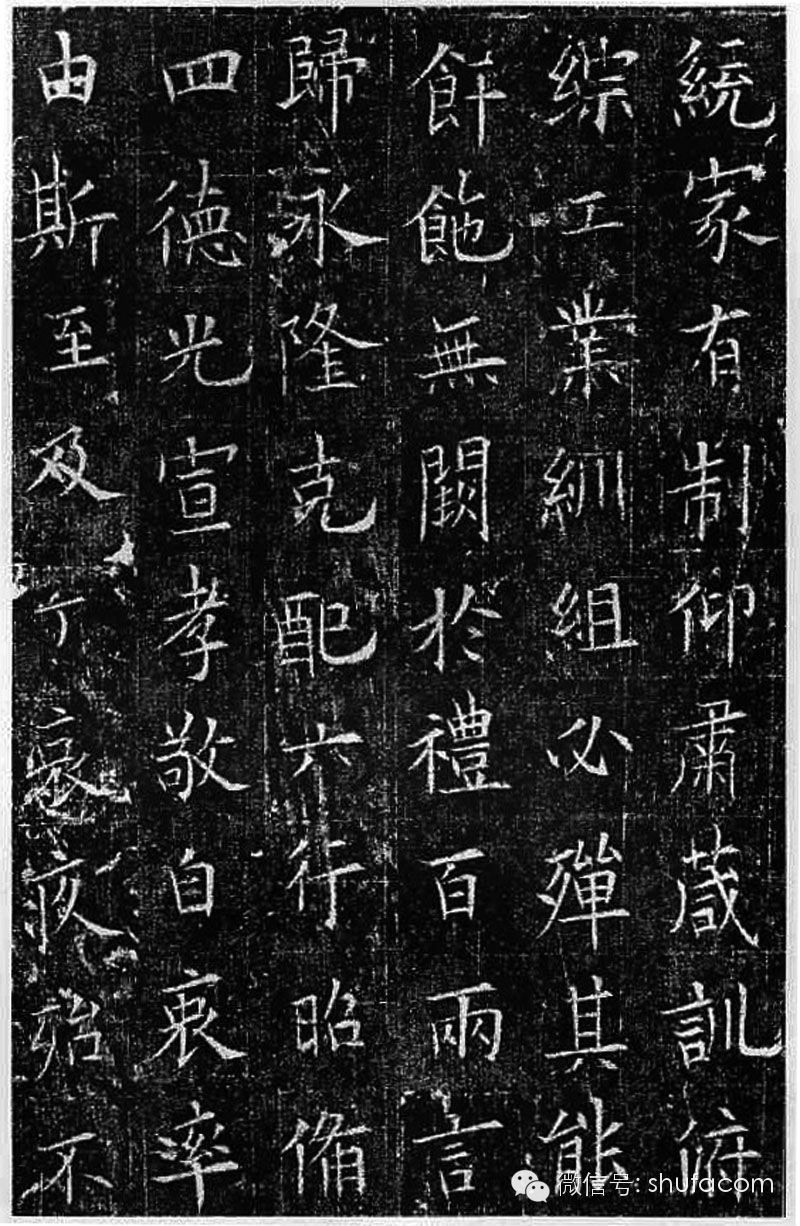 統家有制仰肅葴訓俯
綜工業紃組必殫其能
餅無闕於禮百兩言
歸永隆克配六行昭脩
四德光宣孝敬自衷率
由斯至及丁哀疚殆不
微信号: shufacom